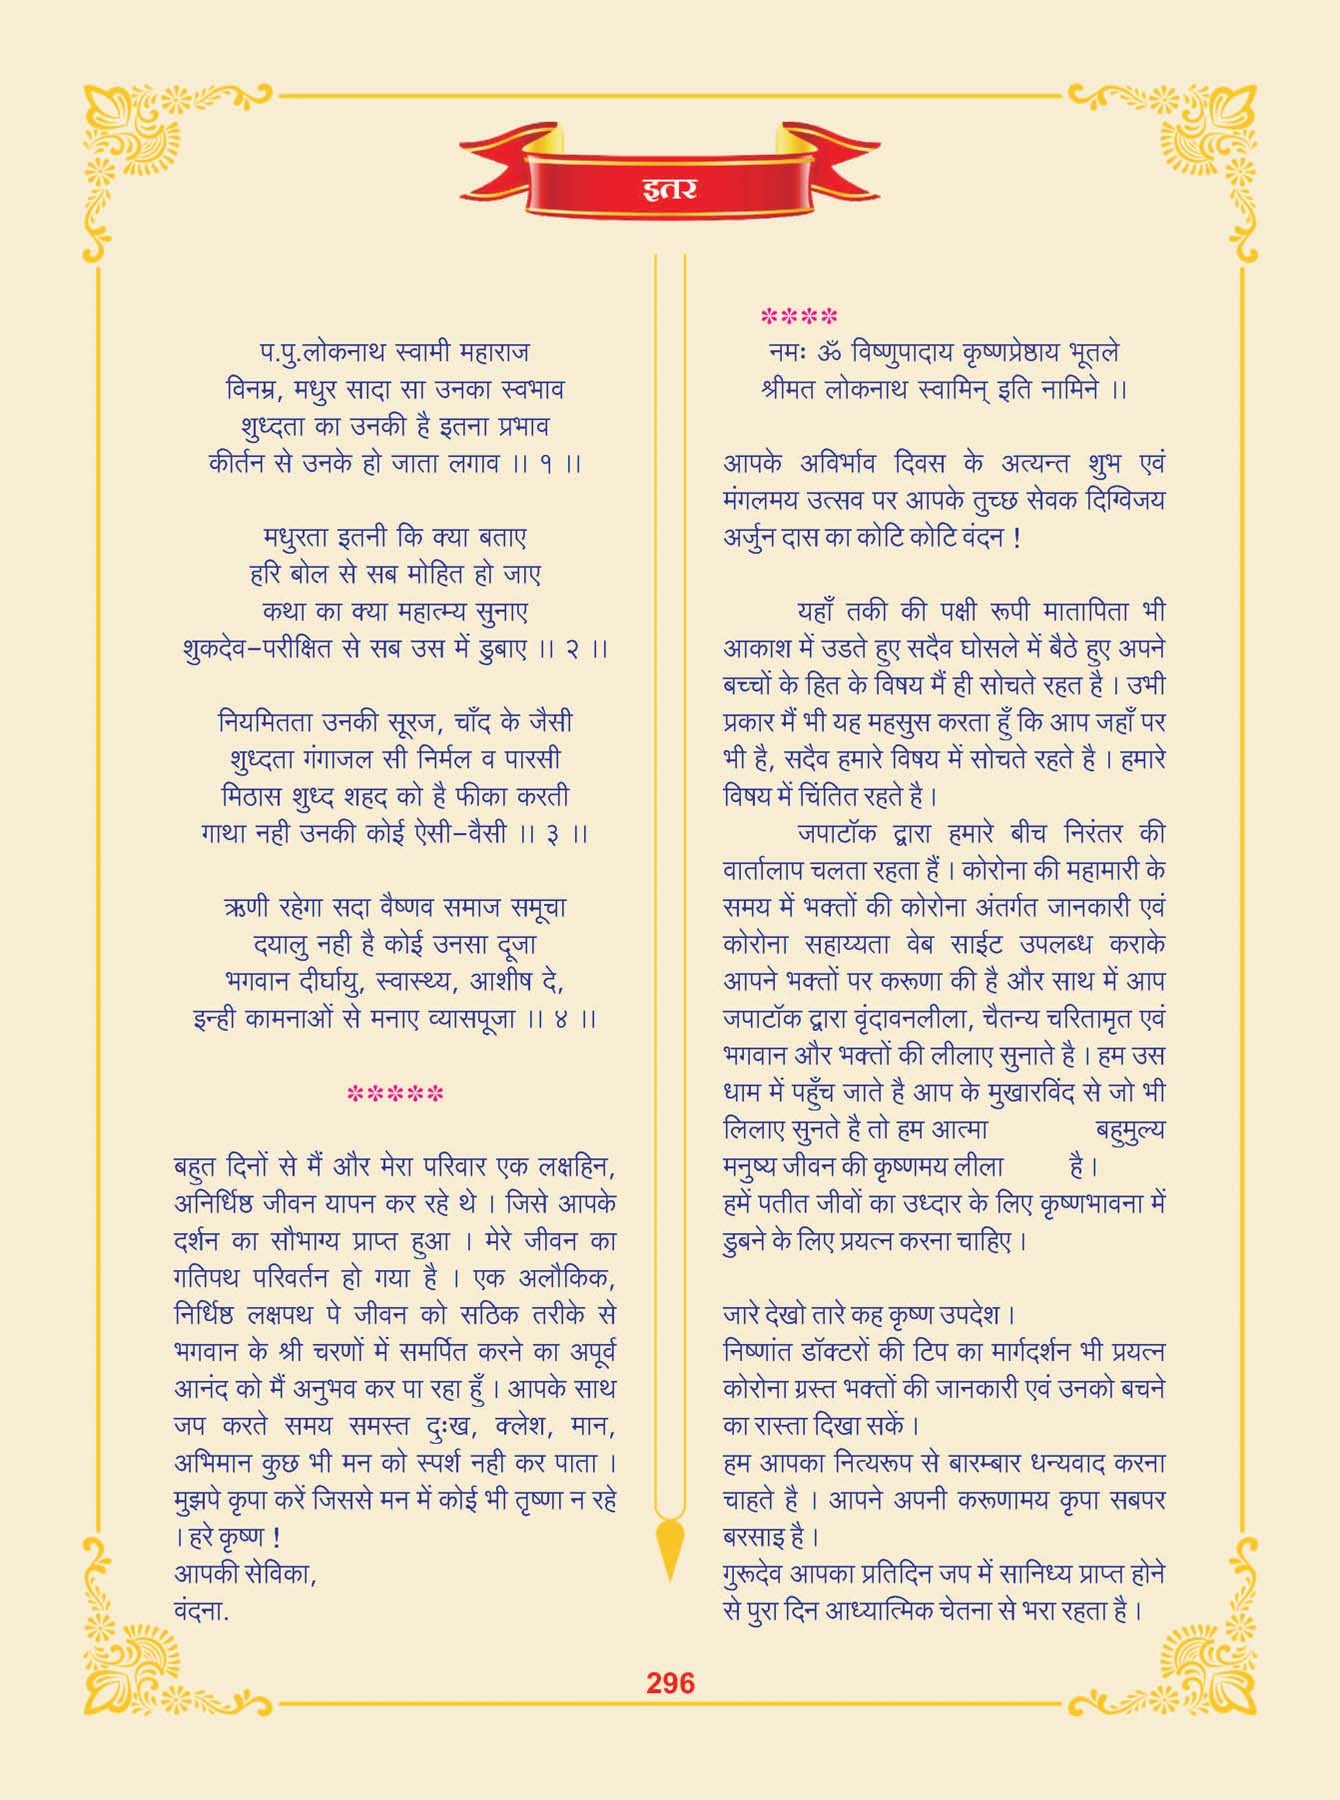 इतर
प.पु.लोकनाथ स्वामी महाराज
विनम्र, मधुर सादा सा उनका स्वभाव
शुध्दता का उनकी है इतना प्रभाव
कीर्तन से उनके हो जाता लगाव ।। १ ।।
मधुरता इतनी कि क्या बताए
हरि बोल से सब मोहित हो जाए
कथा का क्या महात्म्य सुनाए
शुकदेव–परीक्षित से सब उस में डुबाए ।। २ ।।
नियमितता उनकी सूरज, चाँद के जैसी
शुध्दता गंगाजल सी निर्मल व पारसी
मिठास शुध्द शहद को है फीका करती
गाथा नही उनकी कोई ऐसी–वैसी ।। ३ ।।
ऋणी रहेगा सदा वैष्णव समाज समूचा
दयालु नही है कोई उनसा दूजा
भगवान दीर्घायु, स्वास्थ्य, आशीष दे,
इन्ही कामनाओं से मनाए व्यासपूजा ।। ४ ।।
*****
बहुत दिनों से मैं और मेरा परिवार एक लक्षहिन,
अनिर्धिष्ठ जीवन यापन कर रहे थे । जिसे आपके
दर्शन का सौभाग्य प्राप्त हुआ । मेरे जीवन का
गतिपथ परिवर्तन हो गया है । एक अलौकिक,
निर्धिष्ठ लक्षपथ पे जीवन को सठिक तरीके से
भगवान के श्री चरणों में समर्पित करने का अपूर्व
आनंद को मैं अनुभव कर पा रहा हुँ । आपके साथ
जप करते समय समस्त दुःख, क्लेश, मान,
अभिमान कुछ भी मन को स्पर्श नही कर पाता ।
मुझपे कृपा करें जिससे मन में कोई भी तृष्णा न रहे
। हरे कृष्ण !
आपकी सेविका,
वंदना.
****
नमः ॐ विष्णुपादाय कृष्णप्रेष्ठाय भूतले
श्रीमत लोकनाथ स्वामिन् इति नामिने ।।
आपके अविर्भाव दिवस के अत्यन्त शुभ एवं
मंगलमय उत्सव पर आपके तुच्छ सेवक दिग्विजय
अर्जुन दास का कोटि कोटि वंदन !
यहाँ तकी की पक्षी रूपी मातापिता भी
आकाश में उडते हुए सदैव घोसले में बैठे हुए अपने
बच्चों के हित के विषय मैं ही सोचते रहत है । उभी
प्रकार मैं भी यह महसुस करता हुँ कि आप जहाँ पर
भी है, सदैव हमारे विषय में सोचते रहते है । हमारे
विषय में चिंतित रहते है ।
जपाटॉक द्वारा हमारे बीच निरंतर की
वार्तालाप चलता रहता हैं । कोरोना की महामारी के
समय में भक्तों की कोरोना अंतर्गत जानकारी एवं
कोरोना सहाय्यता वेब साईट उपलब्ध कराके
आपने भक्तों पर करूणा की है और साथ में आप
जपाटॉक द्वारा वृंदावनलीला, चैतन्य चरितामृत एवं
भगवान और भक्तों की लीलाए सुनाते है । हम उस
धाम में पहुँच जाते है आप के मुखारविंद से जो भी
लिलाए सुनते है तो हम आत्मा बहुमुल्य
मनुष्य जीवन की कृष्णमय लीला है ।
हमें पतीत जीवों का उध्दार के लिए कृष्णभावना में
डुबने के लिए प्रयत्न करना चाहिए ।
जारे देखो तारे कह कृष्ण उपदेश ।
निष्णांत डॉक्टरों की टिप का मार्गदर्शन भी प्रयत्न
कोरोना ग्रस्त भक्तों की जानकारी एवं उनको बचने
का रास्ता दिखा सकें ।
हम आपका नित्यरूप से बारम्बार धन्यवाद करना
चाहते है । आपने अपनी करूणामय कृपा सबपर
बरसाइ है ।
गुरूदेव आपका प्रतिदिन जप में सानिध्य प्राप्त होने
से पुरा दिन आध्यात्मिक चेतना से भरा रहता है ।
296